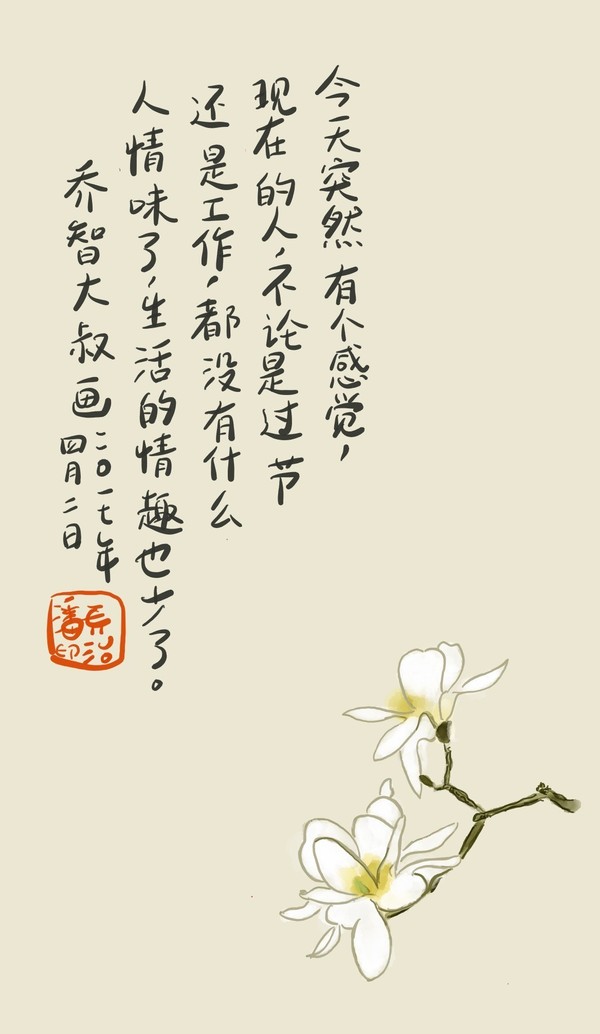 今天突然有个感觉，
现在的人，不论是过节
还是工作，都没有什么
人情味了，生活的情趣也少了。
乔智大叔画
二〇一七年
四月二日